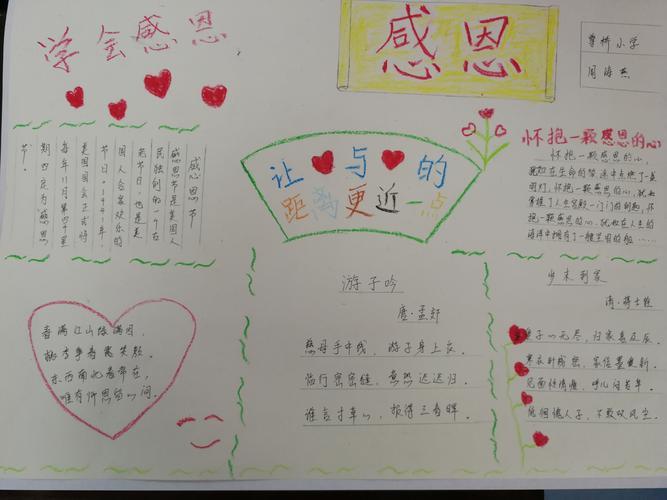 学会感恩
感恩
曹桥小学
周海燕
感恩节
感恩节是美国人
民独创的一个古
老节日，也是美
国人合家欢乐的
节日。1941年，
美国国会正式将
每年11月第四个星
期四定为"感恩
节"。
让❤与❤的
距离更近一点
怀抱一颗感恩的心
怀抱一颗感恩的心，
就如在生命的
灯，怀抱一颗感恩的心，就如
掌握了人生
抱一颗感恩的心，就如在人生的
海洋中拥有了一艘
游子吟
唐·孟郊
慈母手中线，游子身上衣
临行密密缝，意恐迟迟归。
谁言寸草心，报得三春晖
岁末到家
清·蒋士铨
爱子心无尽，归家喜及辰。
寒衣针线密，家信墨痕新。
见面怜清瘦，呼儿问苦辛。
低徊愧人子，不敢叹风尘。
春满江山绿满园，
桃李争春露笑颜。
东西南北春常在，
唯有师恩留心间。